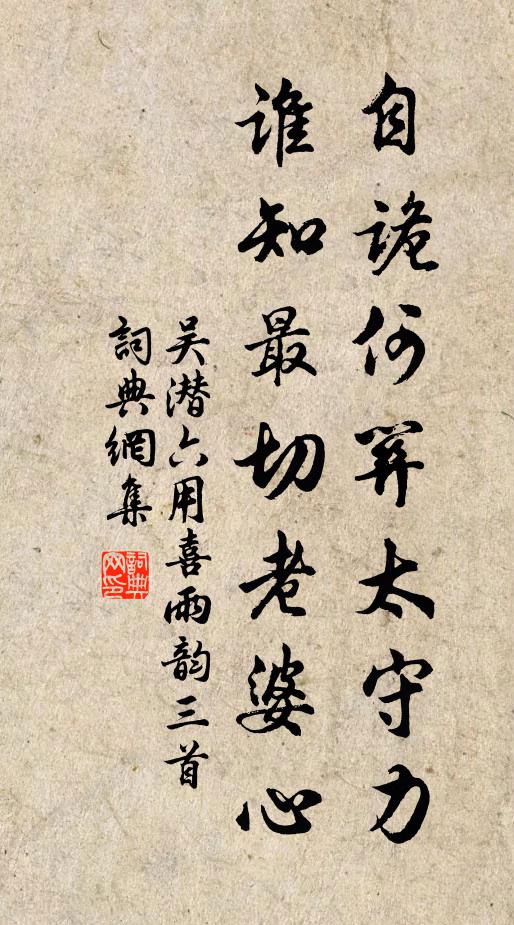 自詭何關太守力
誰知最切老婆心
吴潜六用喜雨韵三首
詞典網集
詞典
网印